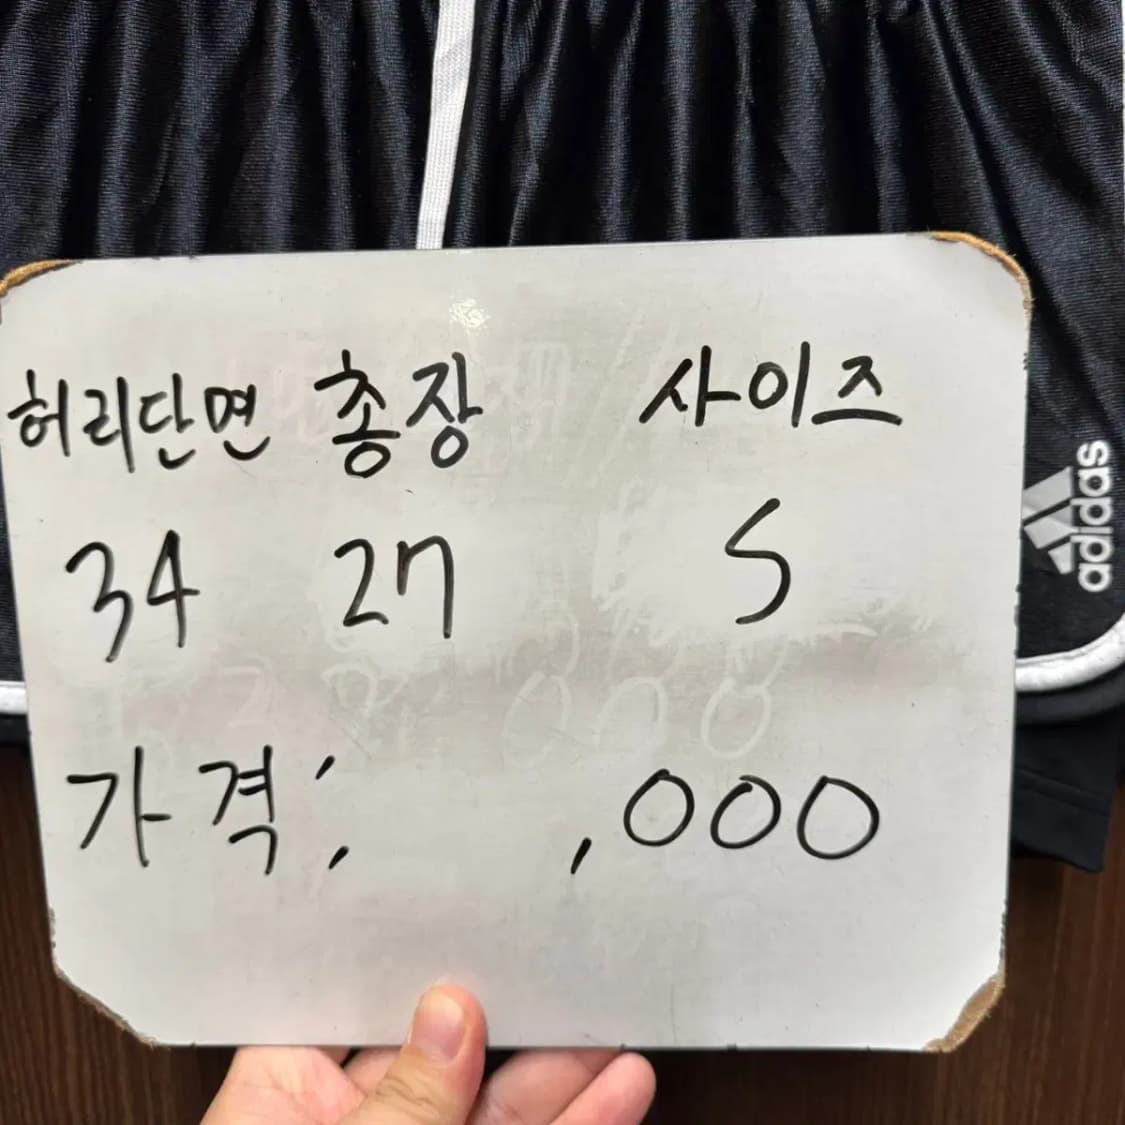 허리단면 총장 사이즈
34 27 S
가격: ,000
adidas